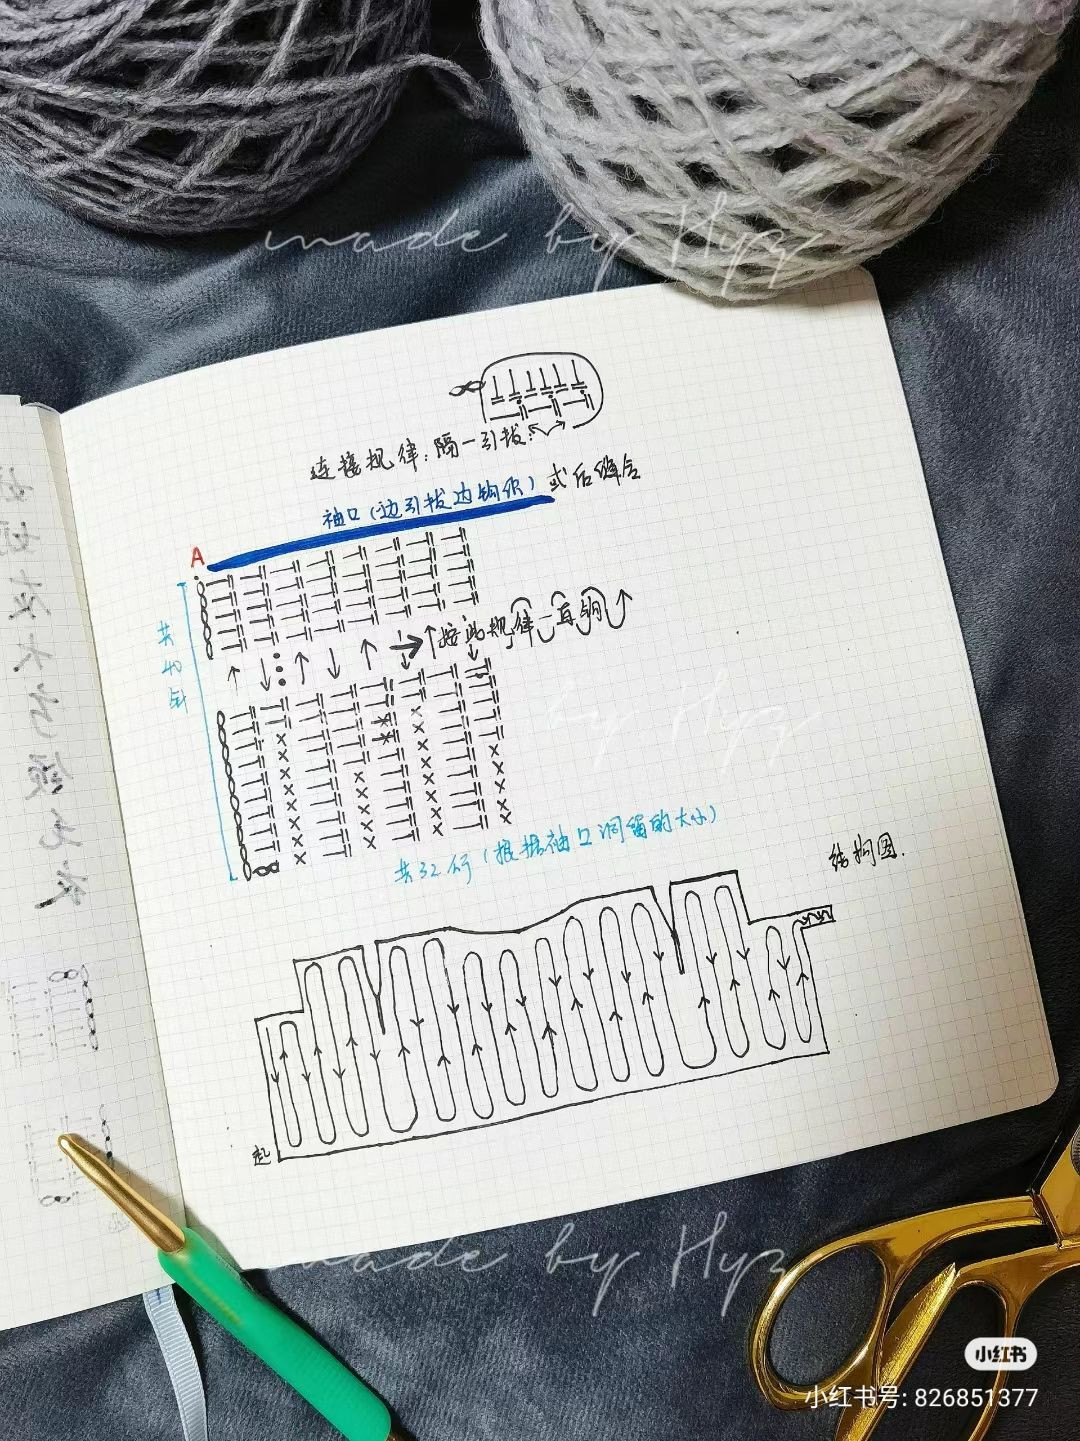 made by Hyz
连接规律:隔一引拔
袖口(边引拔边钩织)或后缝合
A
共40针
按此规律一直钩
by Hyz
共32行(根据袖口洞留的大小)
结构图.
起
made by Hyz
小红书
小红书号: 826851377